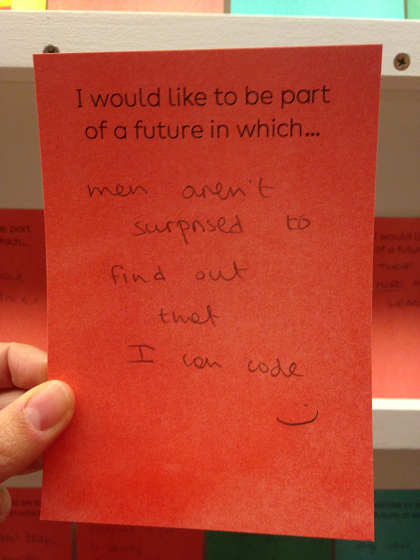 I would like to be part
of a future in which...
men aren't
surprised to
find out
that
I can code